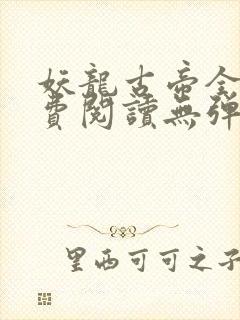 妖龍古帝全
費閱讀無彈
里西可可之子